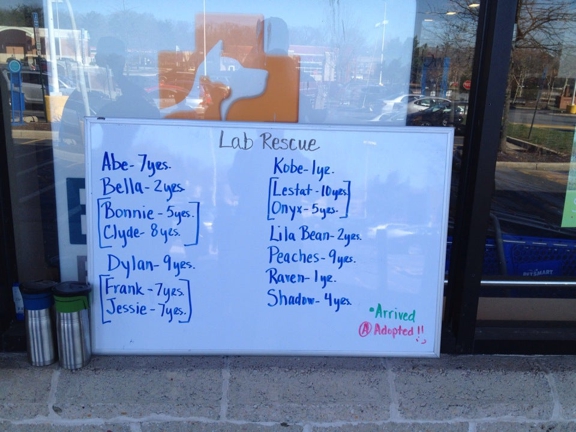 Lab Rescue
Abe- 7yrs.
Bella- 2yrs.
Bonnie- 5yrs.
Clyde- 8yrs.
Dylan- 9yrs.
Frank- 7yrs.
Jessie- 7yrs.
Kobe- 1yr.
Lestat- 10yrs.
Onyx- 5yrs.
Lila Bean- 2yrs.
Peaches- 9yrs.
Raven- 1yr.
Shadow- 4yrs.
•Arrived
Ⓐ Adopted!!